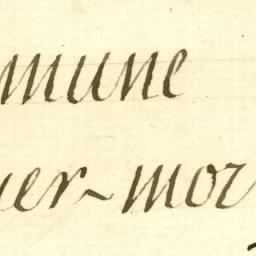 mmune
uer-mor